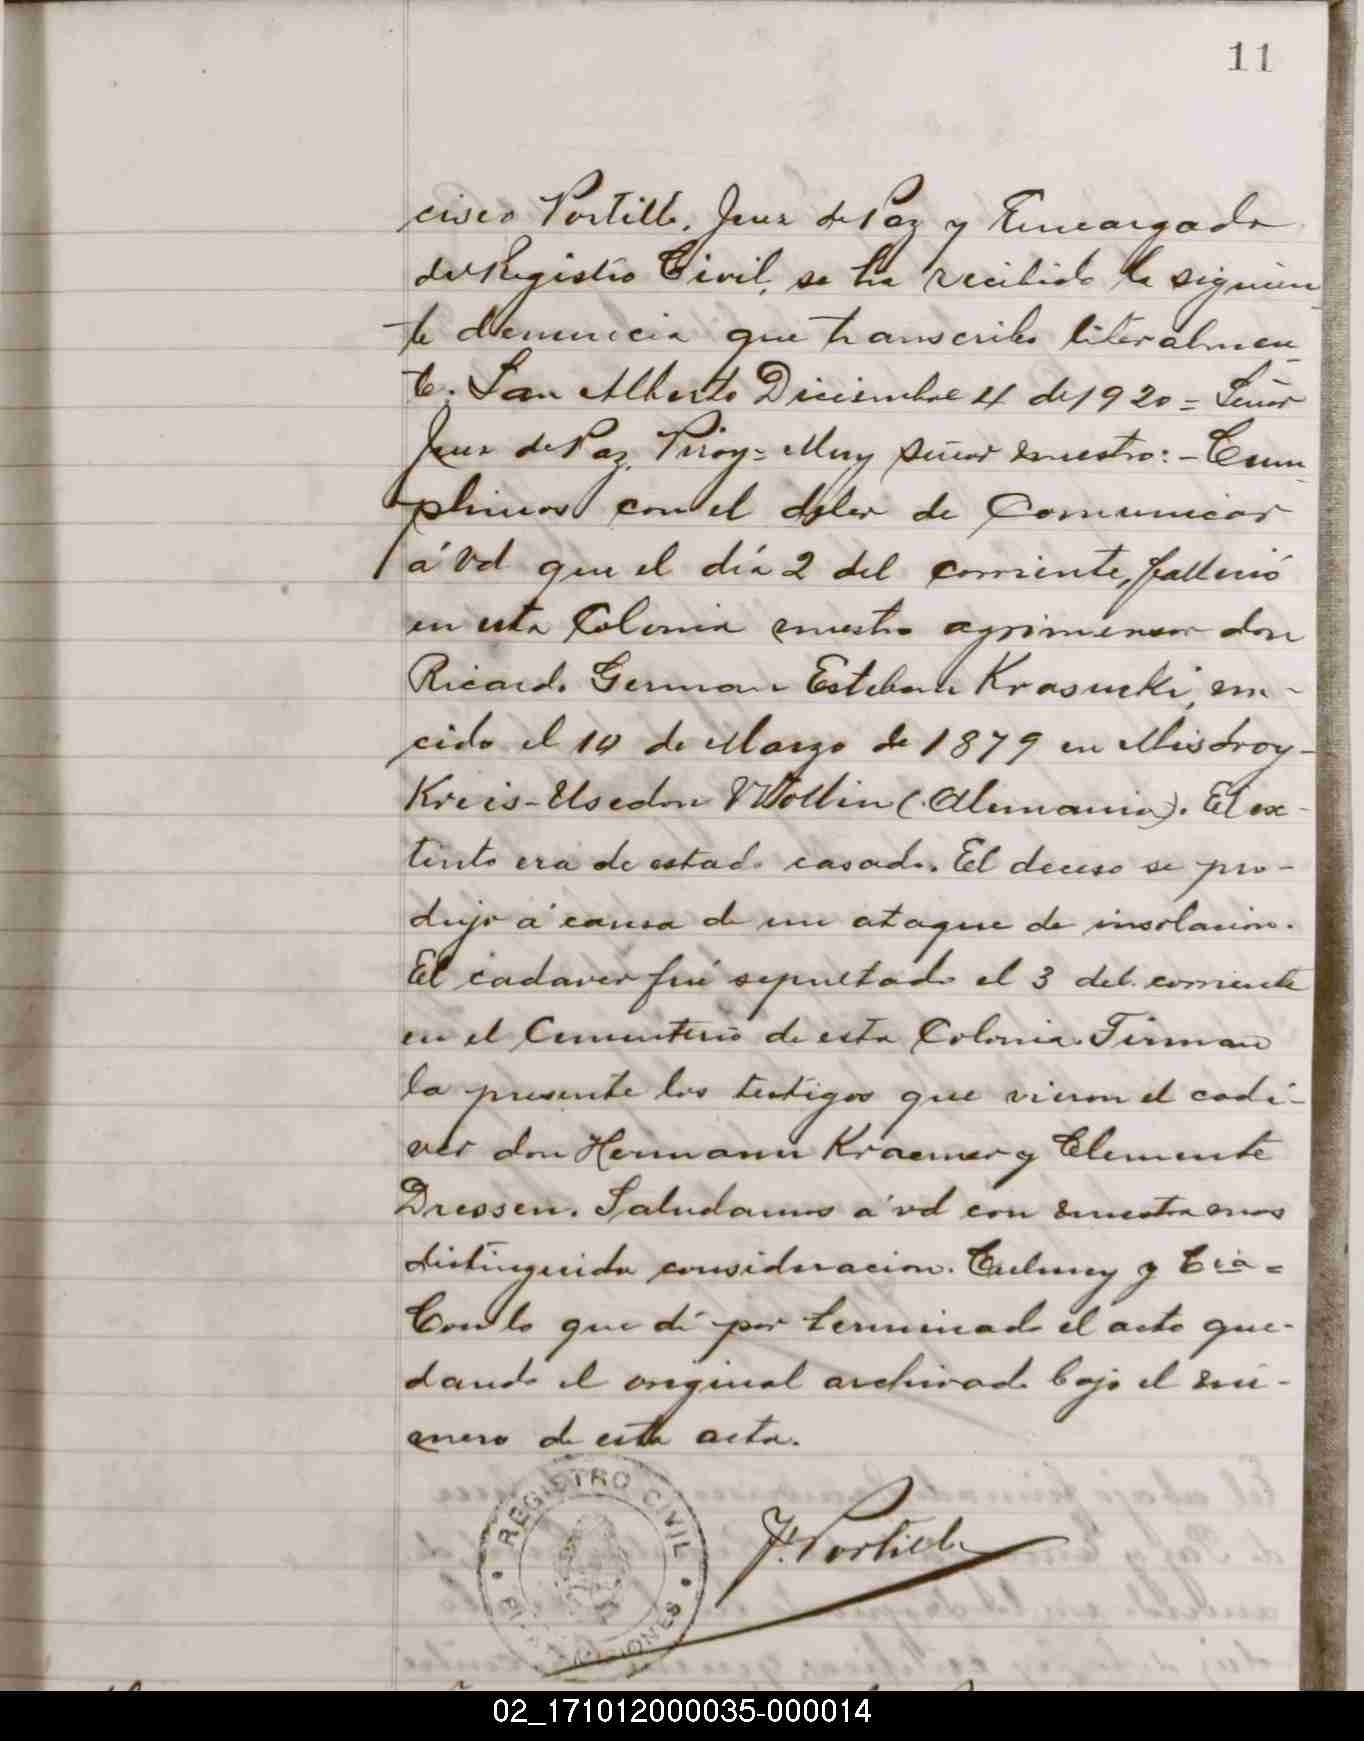 11
cisco Portillo, Juez de Paz y Encargado
del Registro Civil, se ha recibido la siguien
te denuncia que transcribo literalmen-
te. San Alberto Diciembre 4 de 1920 = Señor
Juez de Paz, Piray = Muy señor nuestro: - Cum
plimos con el deber de Comunicar
á Vd que el día 2 del corriente, falleció
en esta Colonia nuestro agrimensor don
Ricardo German Esteban Krasucki, na-
cido el 10 de Marzo de 1879 en Misdroy-
Kreis-Usedon Wollin (Alemania). El ex-
tinto era de estado casado. El deceso se pro-
dujo á causa de un ataque de insolacion.
El cadaver fué sepultado el 3 del corriente
en el Cementerio de esta Colonia. Firman
la presente los testigos que vieron el cadá-
ver don Hermann Kraemer y Clemente
Dressen. Saludamos á vd con nuestra mas
distinguida consideracion. Culmey y Cia =
Con lo que dí por terminado el acto que-
dando el original archivado bajo el nú-
mero de esta acta.
F. Portillo
REGISTRO CIVIL
MISIONES
02_171012000035-000014